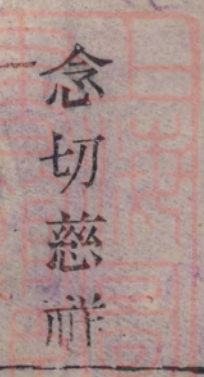 念切慈祥